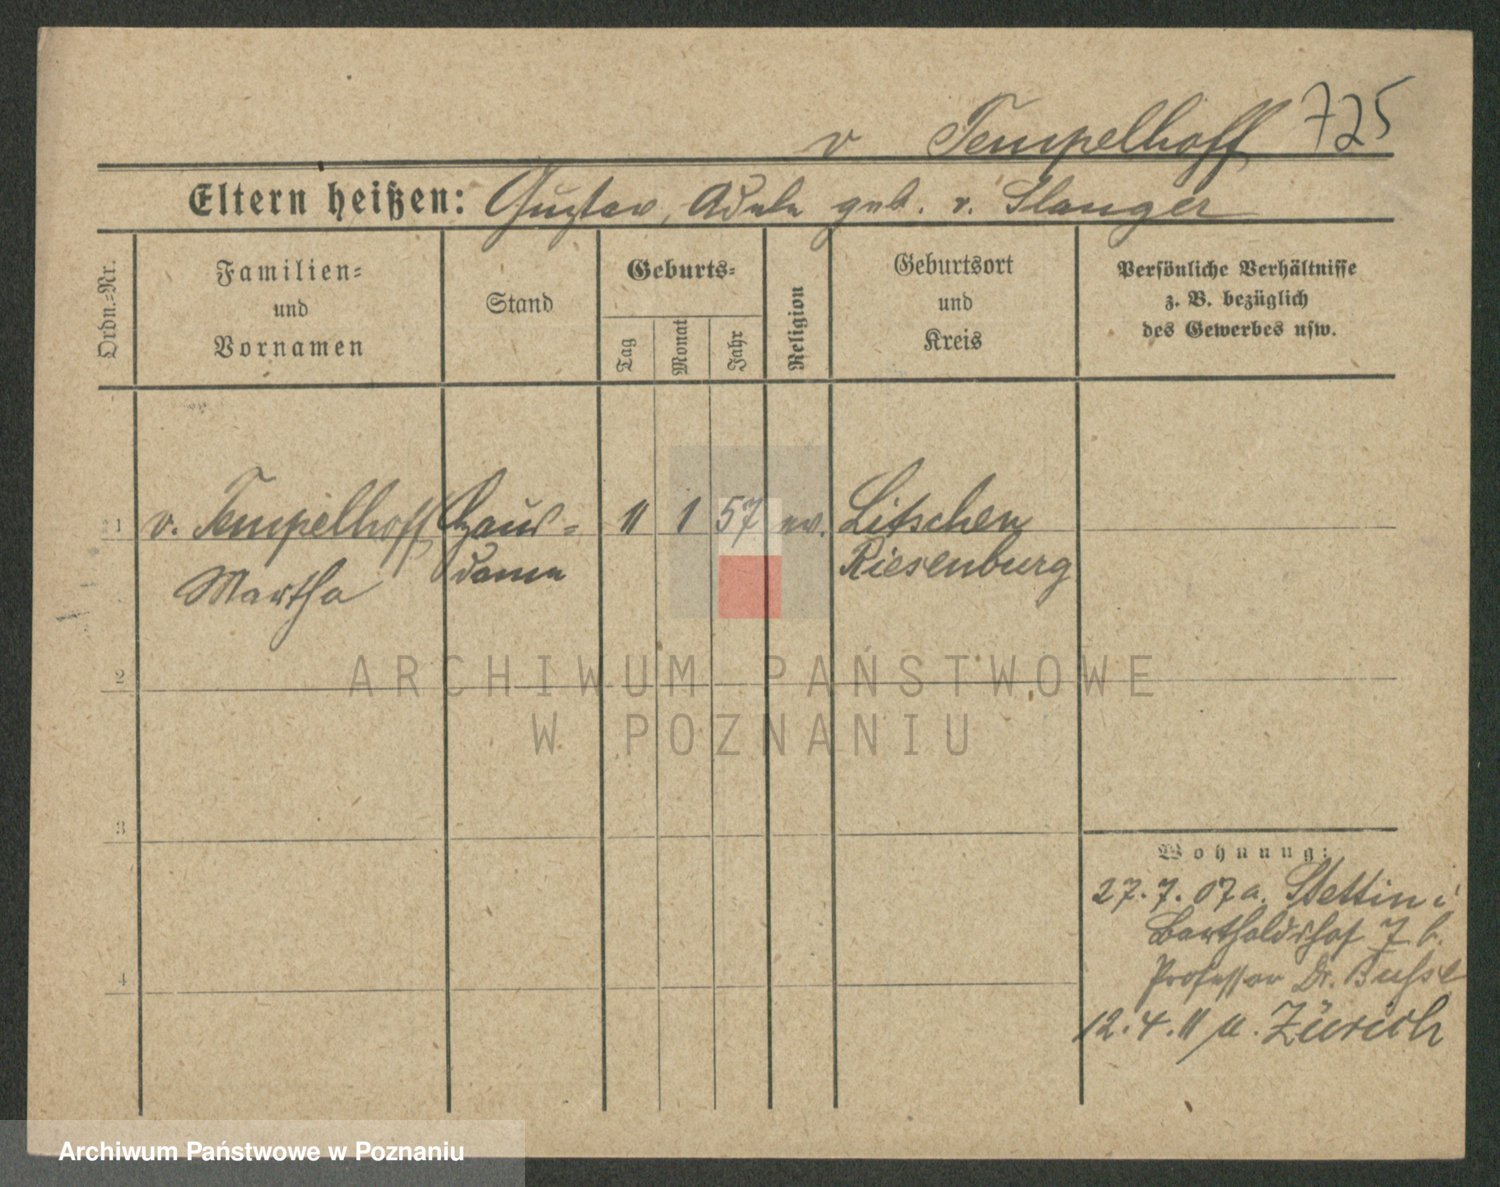 v Tempelhoff 725
Eltern heißen: Gustav, Adele geb. v. Slanger
Ordn.-Nr.
Familien-
und
Vornamen
Stand
Geburts-
Tag
Monat
Jahr
Religion
Geburtsort
und
Kreis
Persönliche Verhältnisse
z. B. bezüglich
des Gewerbes usw.
1 v. Tempelhoff Haus- 11 1 57 ev. Litschen
Martha dame Riesenburg
2
ARCHIWUM PAŃSTWOWE
W POZNANIU
3
Wohnung:
27.7.07 a. Stettin i
Bartholdshof 7 b.
Professor Dr. Busse
4
12.4.11 u. Zürich
Archiwum Państwowe w Poznaniu